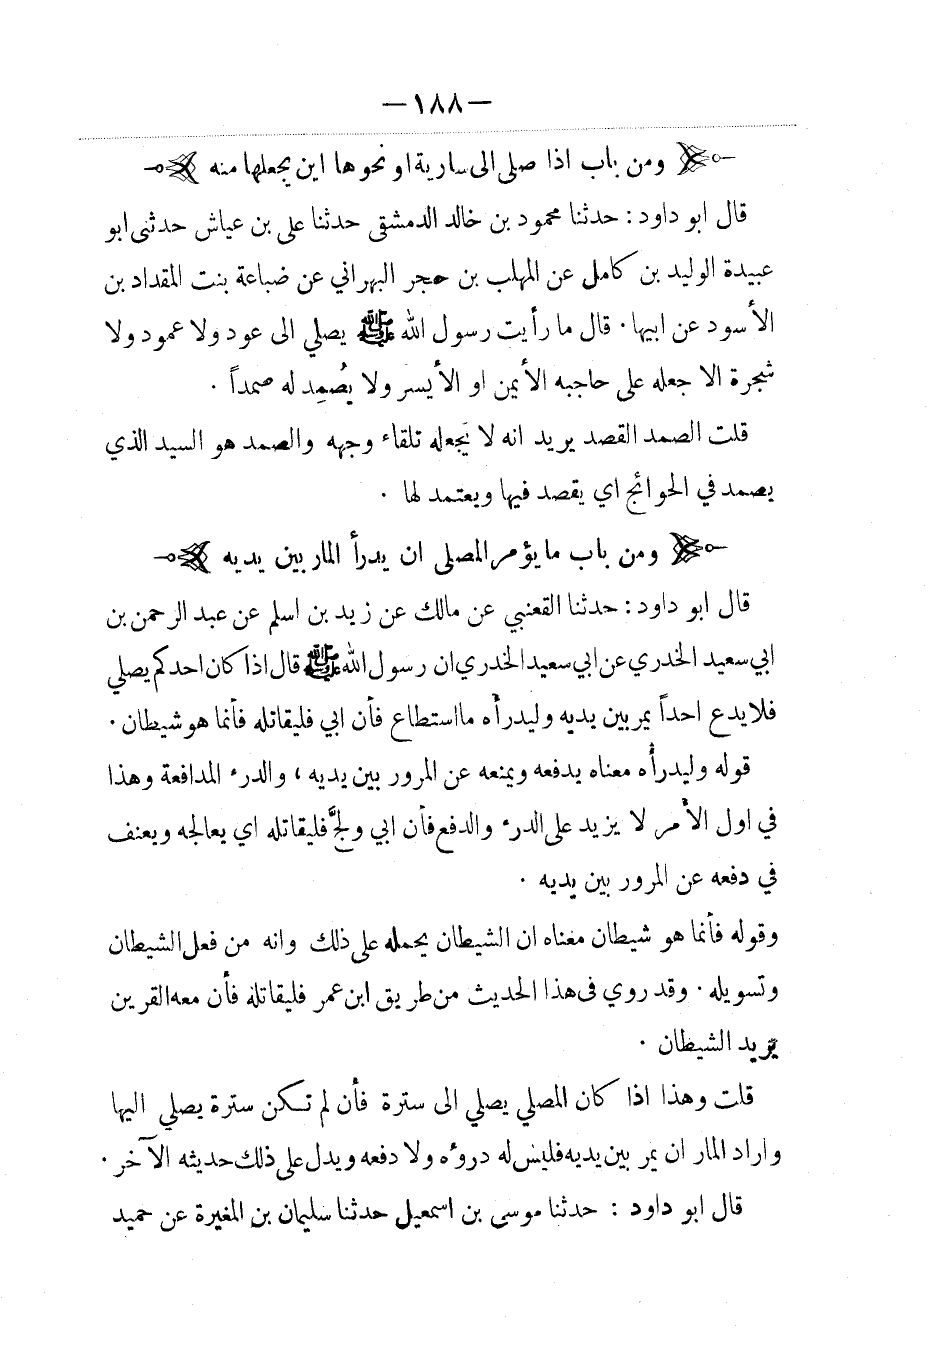 —١٨٨—
ومن باب اذا صلى الى سارية او نحوها اين يجعلها منه
قال ابو داود : حدثنا محمود بن خالد الدمشقي حدثنا علي بن عياش حدثني ابو
عبيدة الوليد بن كامل عن المهلب بن حجر البهراني عن ضباعة بنت المقداد بن
الأسود عن ابيها . قال ما رأيت رسول الله ﷺ يصلي الى عود ولا عمود ولا
شجرة الا جعله على حاجبه الأيمن او الأيسر ولا يصُمِد له صمداً .
قلت الصمد القصد يريد انه لا يَجعله تلقاء وجهه والصمد هو السيد الذي
يصمد في الحوائج اي يقصد فيها ويعتمد لها .
ومن باب ما يؤمر المصلى ان يدرأ المار بين يديه
قال ابو داود : حدثنا القعنبي عن مالك عن زيد بن اسلم عن عبد الرحمن بن
ابي سعيد الخدري عن ابي سعيد الخدري ان رسول الله ﷺ قال اذا كان احدكم يصلي
فلا يدع احداً يمر بين يديه وليدرأه ما استطاع فأن ابي فليقاتله فأنما هو شيطان .
قوله وليدرأه معناه يدفعه ويمنعه عن المرور بين يديه ، والدرء المدافعة وهذا
في اول الأمر لا يزيد على الدرء والدفع فأن ابي ولجَّ فليقاتله اي يعالجه ويعنف
في دفعه عن المرور بين يديه .
وقوله فأنما هو شيطان معناه ان الشيطان يحمله على ذلك وانه من فعل الشيطان
وتسويله . وقد روي في هذا الحديث من طريق ابن عمر فليقاتله فأن معه القرين
يريد الشيطان .
قلت وهذا اذا كان المصلي يصلي الى سترة فأن لم تكن سترة يصلي اليها
واراد المار ان يمر بين يديه فليس له دروئه ولا دفعه ويدل على ذلك حديثه الآخر .
قال ابو داود : حدثنا موسى بن اسمعيل حدثنا سليمان بن المغيرة عن حميد